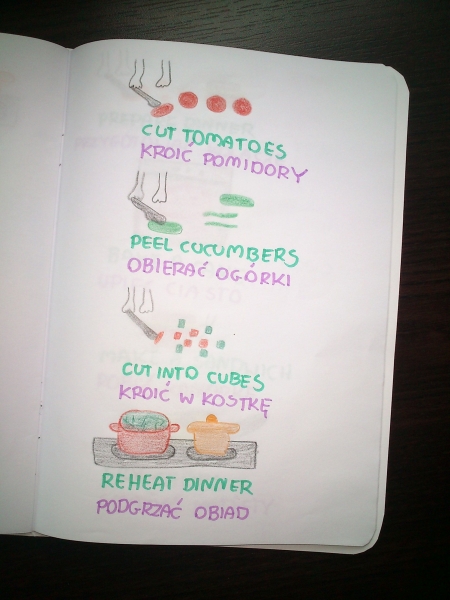 CUT TOMATOES
KROIĆ POMIDORY
PEEL CUCUMBERS
OBIERAĆ OGÓRKI
CUT INTO CUBES
KROIĆ W KOSTKĘ
REHEAT DINNER
PODGRZAĆ OBIAD